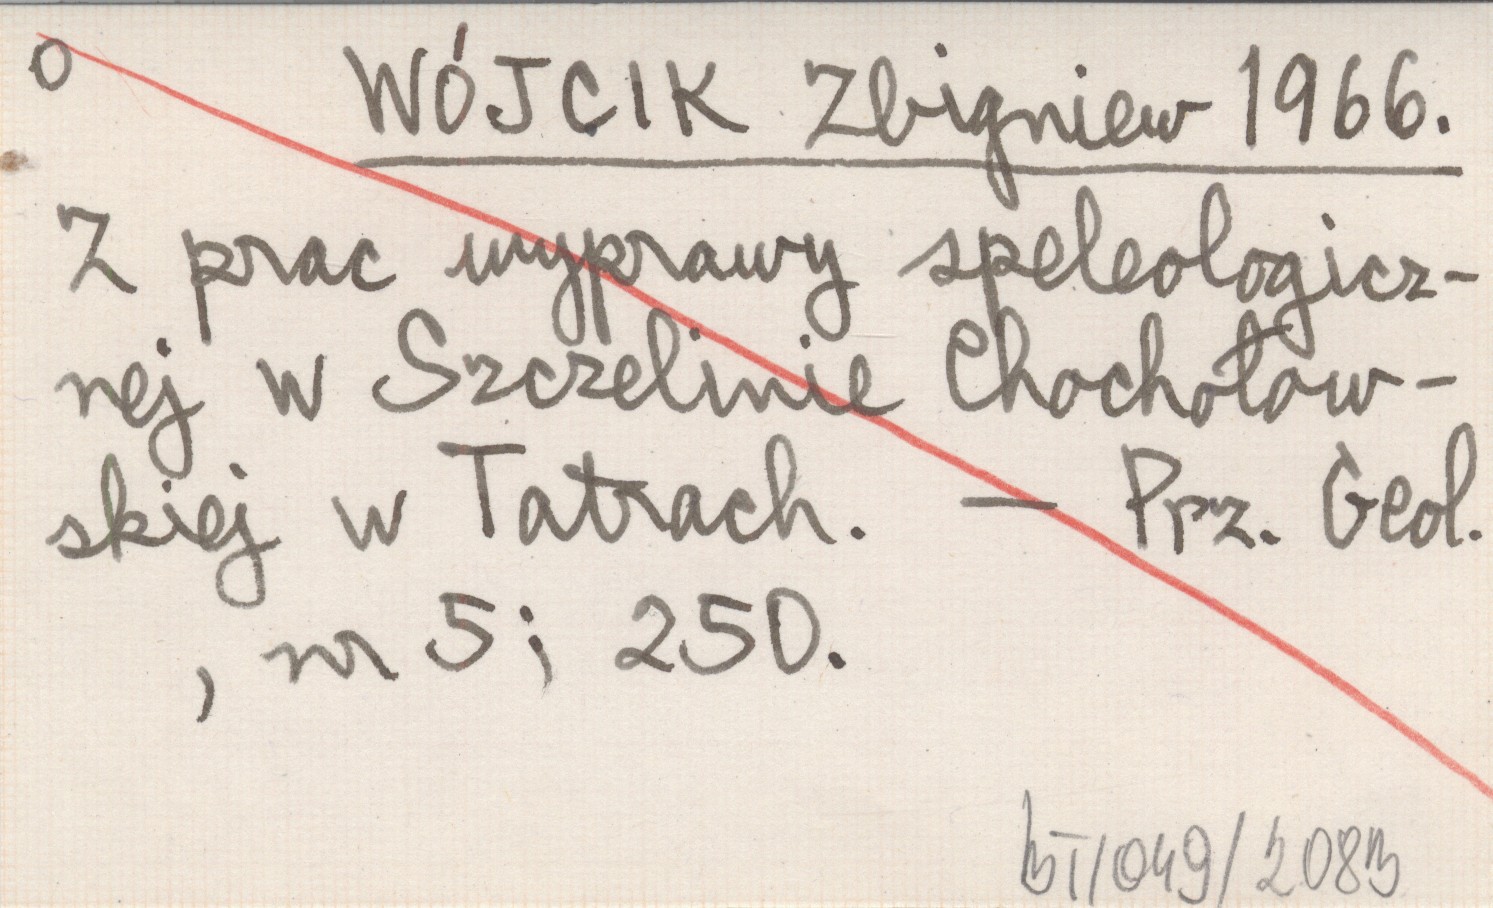 O WÓJCIK Zbigniew 1966.
Z prac wyprawy speleologicz-
nej w Szczelinie Chochołow-
skiej w Tatrach. — Prz. Geol.
, nr 5; 250.
BT/049/2083